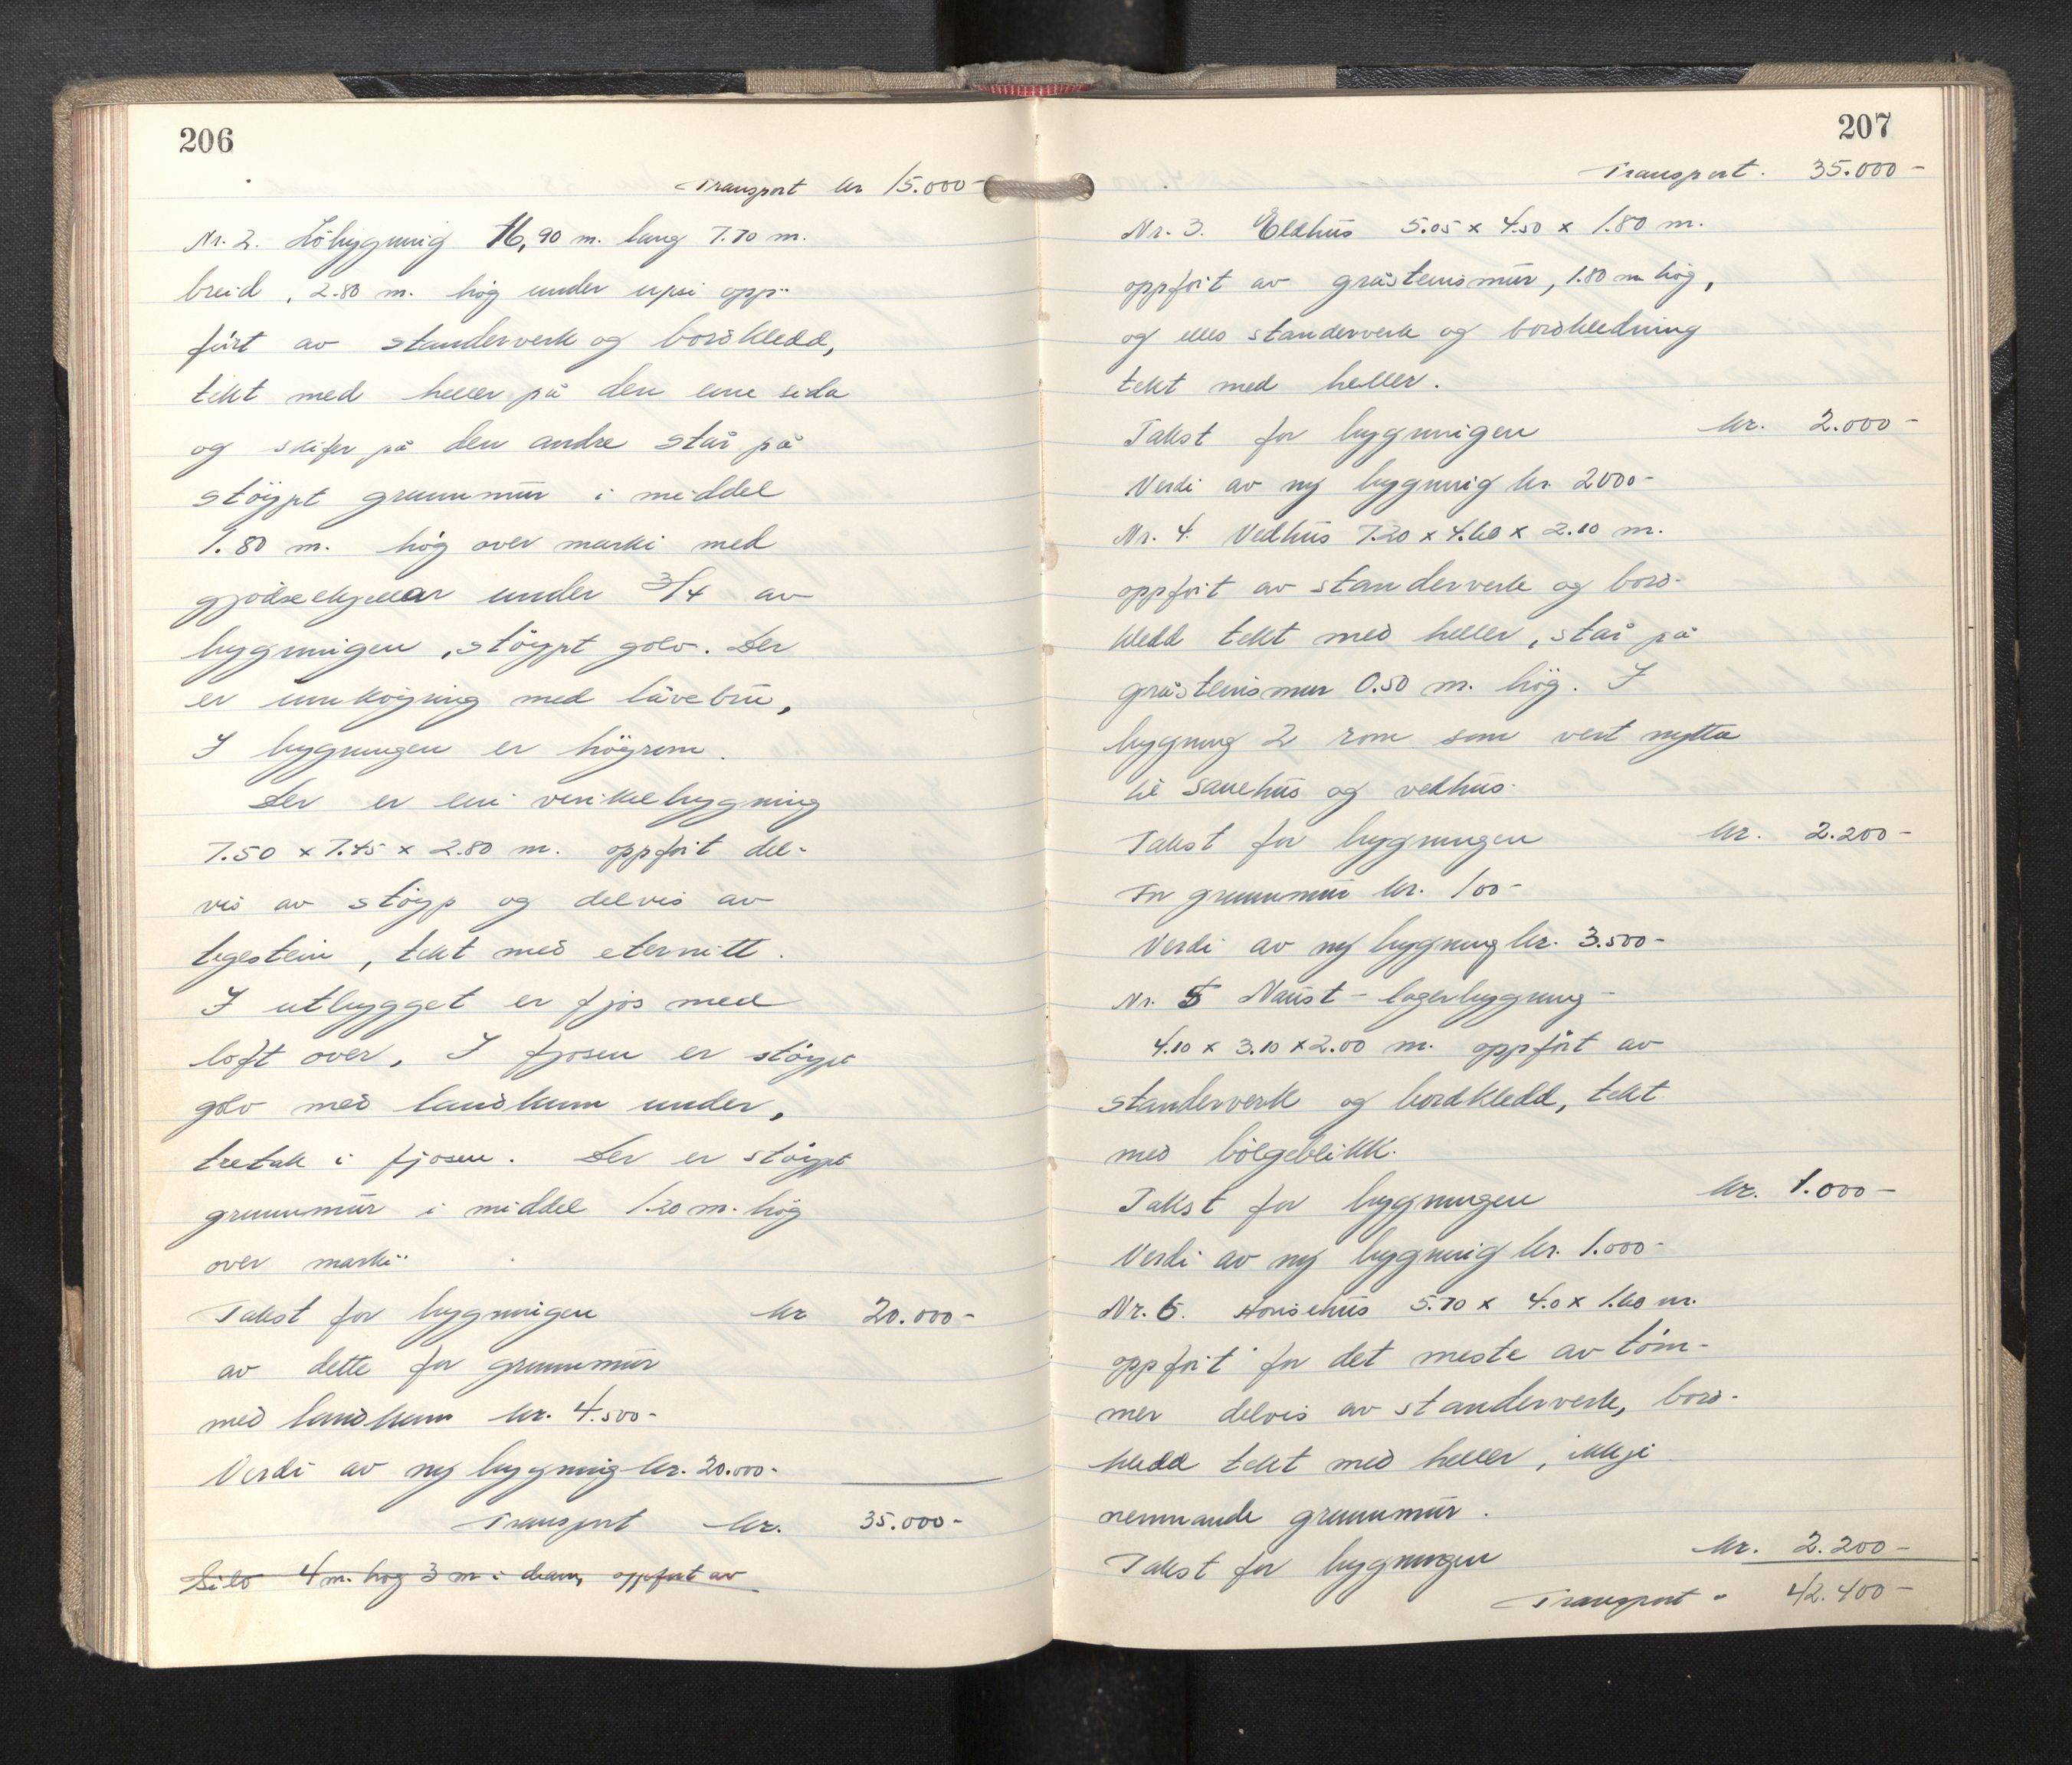 206
Transport kr 15.000-
Nr. 2. Löbygning 16,90 m. lang 7.70 m.
breid, 2.80 m. hög under upsi opp-
fört av standerverk og bordkledd,
tekt med heller på den eine sida
og skifer på den andre står på
støypt grunnmur i middel
1.80 m. hög over marki med
gjödselkjellar under 3/4 av
bygningen, støypt golv. Der
er innköyring med låvebru,
I bygningen er höyrom.
Der er ein vinkelbygning
7.50 x 7.45 x 2.80 m. oppfört del-
vis av støyp og delvis av
tegestein, tekt med eternitt.
I utbygget er fjos med
loft over, I fjosen er støypt
golv med landkum under,
tretak i fjosen. Der er støypt
grunnmur i middel 1.20 m. hög
over marki
Takst for bygningen kr 20.000-
av dette for grunnmur
med landkum kr. 4.500-
Verdi av ny bygning kr. 20.000-
Transport kr. 35.000-
Silo 4 m. hög 3 m i diam, oppfört av
207
Transport. 35.000-
Nr. 3. Eldhus 5.05 x 4.50 x 1.80 m.
oppfört av gråsteinsmur, 1.80 m hög,
og elles standerverk og bordkledning
tekt med heller.
Takst for bygningen kr. 2.000-
Verdi av ny bygning kr. 2000-
Nr. 4. Vedhus 7.20 x 4.60 x 2.10 m.
oppfört av standerverk og bord-
kledd tekt med heller, står på
gråsteinsmur 0.50 m. hög. I
bygning 2 rom som vert nytta
til sauehus og vedhus.
Takst for bygningen kr. 2.200-
For grunnmur kr. 100-
Verdi av ny bygning kr. 3.500-
Nr. 5 Naust - lagerbygning-
4.10 x 3.10 x 2.00 m. oppfört av
standerverk og bordkledd, tekt
med bölgeblikk.
Takst for bygningen kr. 1.000-
Verdi av ny bygning kr. 1.000-
Nr. 6. Hönsehus 5.70 x 4.0 x 1.60 m.
oppfört for det meste av töm-
mer delvis av standerverk, bord-
kledd tekt med heller, ikkje
nemnande grunnmur.
Takst for bygningen kr. 2.200-
Transport " 42.400-